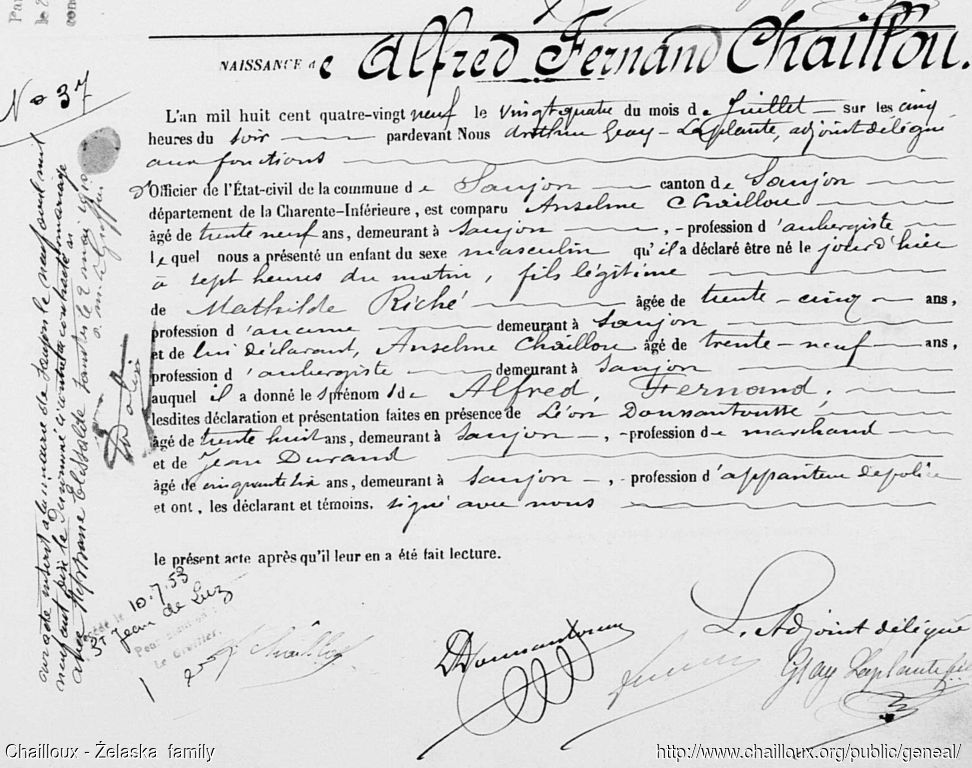 NAISSANCE de Alfred Fernand Chaillou.
No 37
L'an mil huit cent quatre-vingt neuf le vingt quatre du mois de Juillet sur les cinq
heures du soir pardevant Nous Arthur Geay-Laplante, adjoint délégué
aux fonctions
d'Officier de l'État-civil de la commune de Saujon canton de Saujon
département de la Charente-Inférieure, est comparu Anselme Chaillou
âgé de trente neuf ans, demeurant à Saujon, profession d'aubergiste
lequel nous a présenté un enfant du sexe masculin qu'il a déclaré être né le jour d'hier
à sept heures du matin, fils légitime
de Mathilde Riché âgée de trente-cinq ans,
profession d'aucune demeurant à Saujon
et de lui déclarant, Anselme Chaillou âgé de trente-neuf ans,
profession d'aubergiste demeurant à Saujon
auquel il a donné les prénoms de Alfred, Fernand;
lesdites déclaration et présentation faites en présence de Léon Doussantousse
âgé de trente huit ans, demeurant à Saujon, profession de marchand
et de Jean Durand
âgé de cinquante six ans, demeurant à Saujon, profession d'appariteur de police
et ont, les déclarant et témoins, signé avec nous
le présent acte après qu'il leur en a été fait lecture.
de la mairie de Saujon le neuf
a contracté mariage
avec Stéphanie le 2 mai 1910
10.7.53
St Jean de Luz
Le Greffier.
Chaillou
L'Adjoint délégué
Geay Laplante
Chailloux - Želaska family
http://www.chailloux.org/public/geneal/